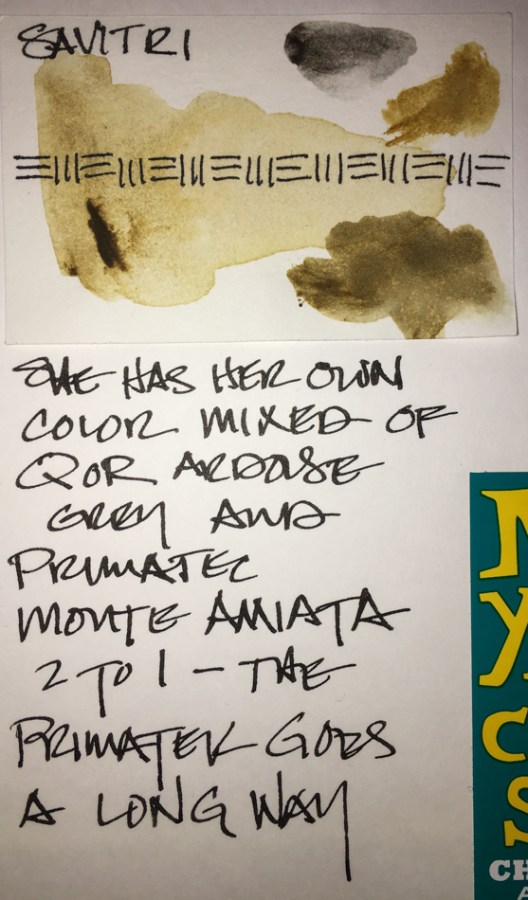 SAVITRI
SHE HAS HER OWN
COLOR MIXED OF
QOR ARDOISE
GREY AND
PRIMATEC
MONTE AMIATA
2 TO 1 – THE
PRIMATEK GOES
A LONG WAY
y
c
s
CH
A